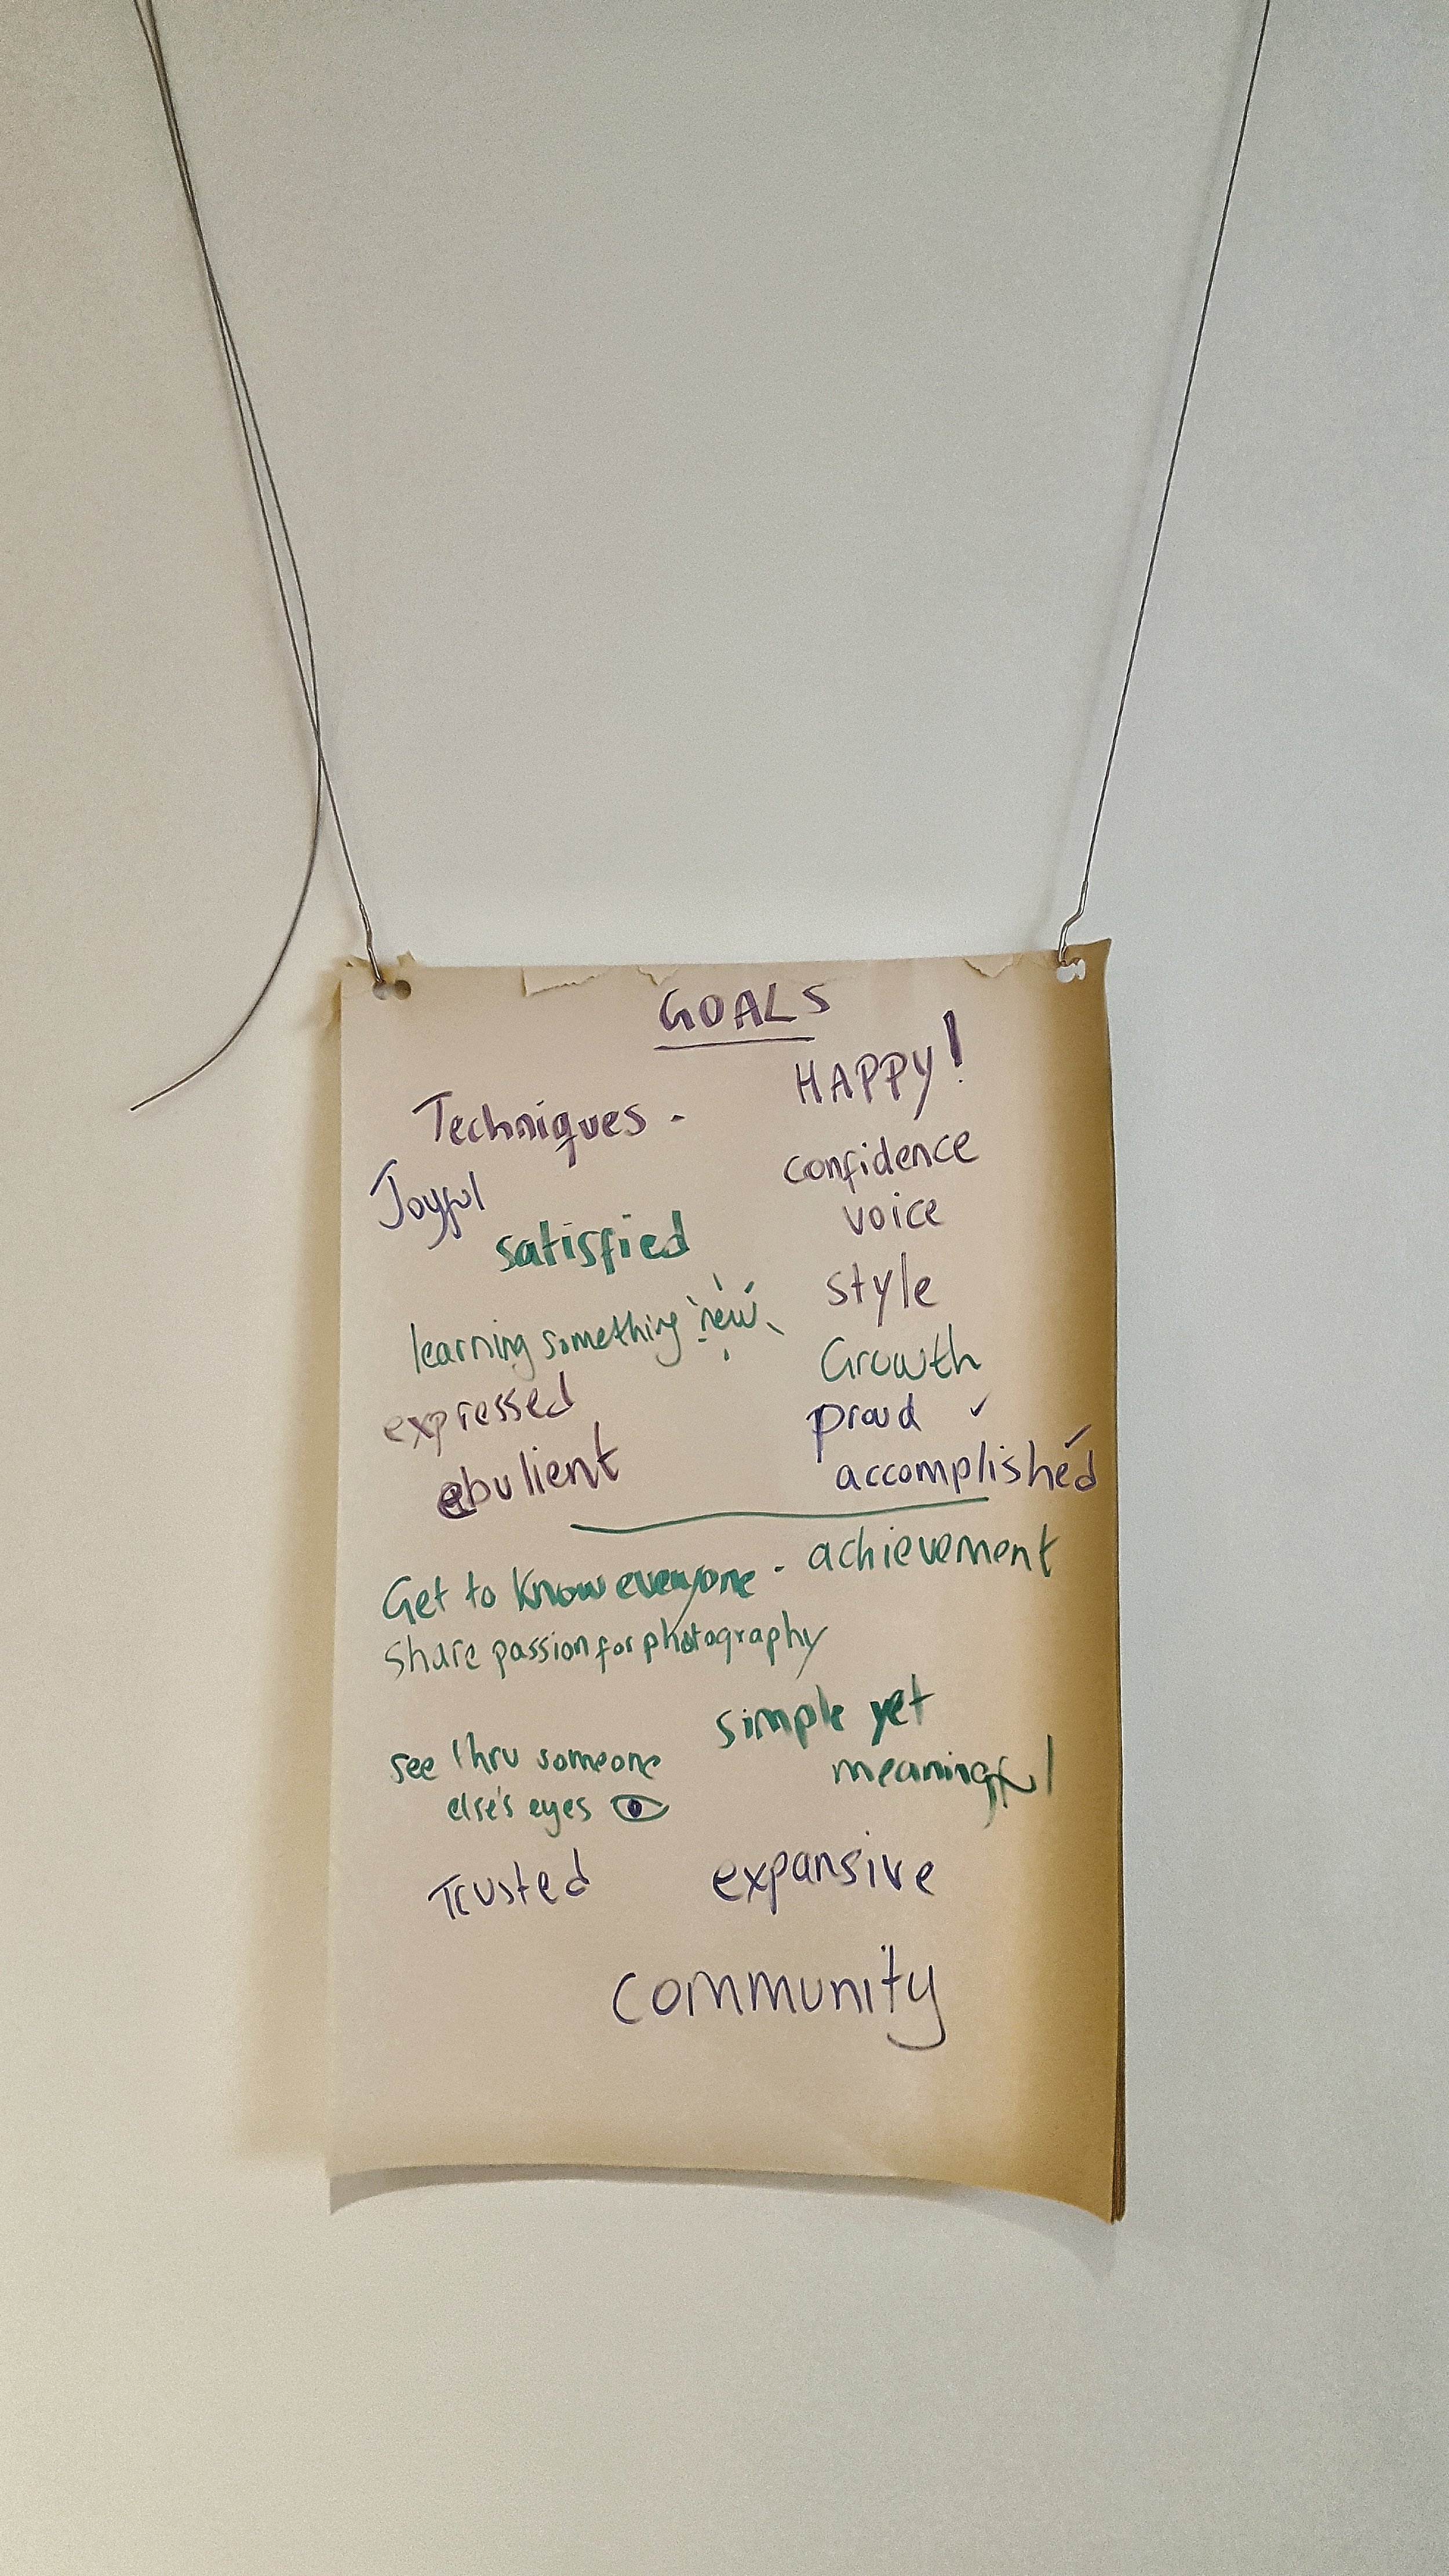 GOALS
HAPPY!
Techniques -
confidence
Joyful
voice
satisfied
style
learning something new
Growth
expressed
proud ✓
ebulient
accomplished ✓
Get to know everyone - achievement
Share passion for photography
simple yet
meaningful
see thru someone
else's eyes
Trusted
expansive
community